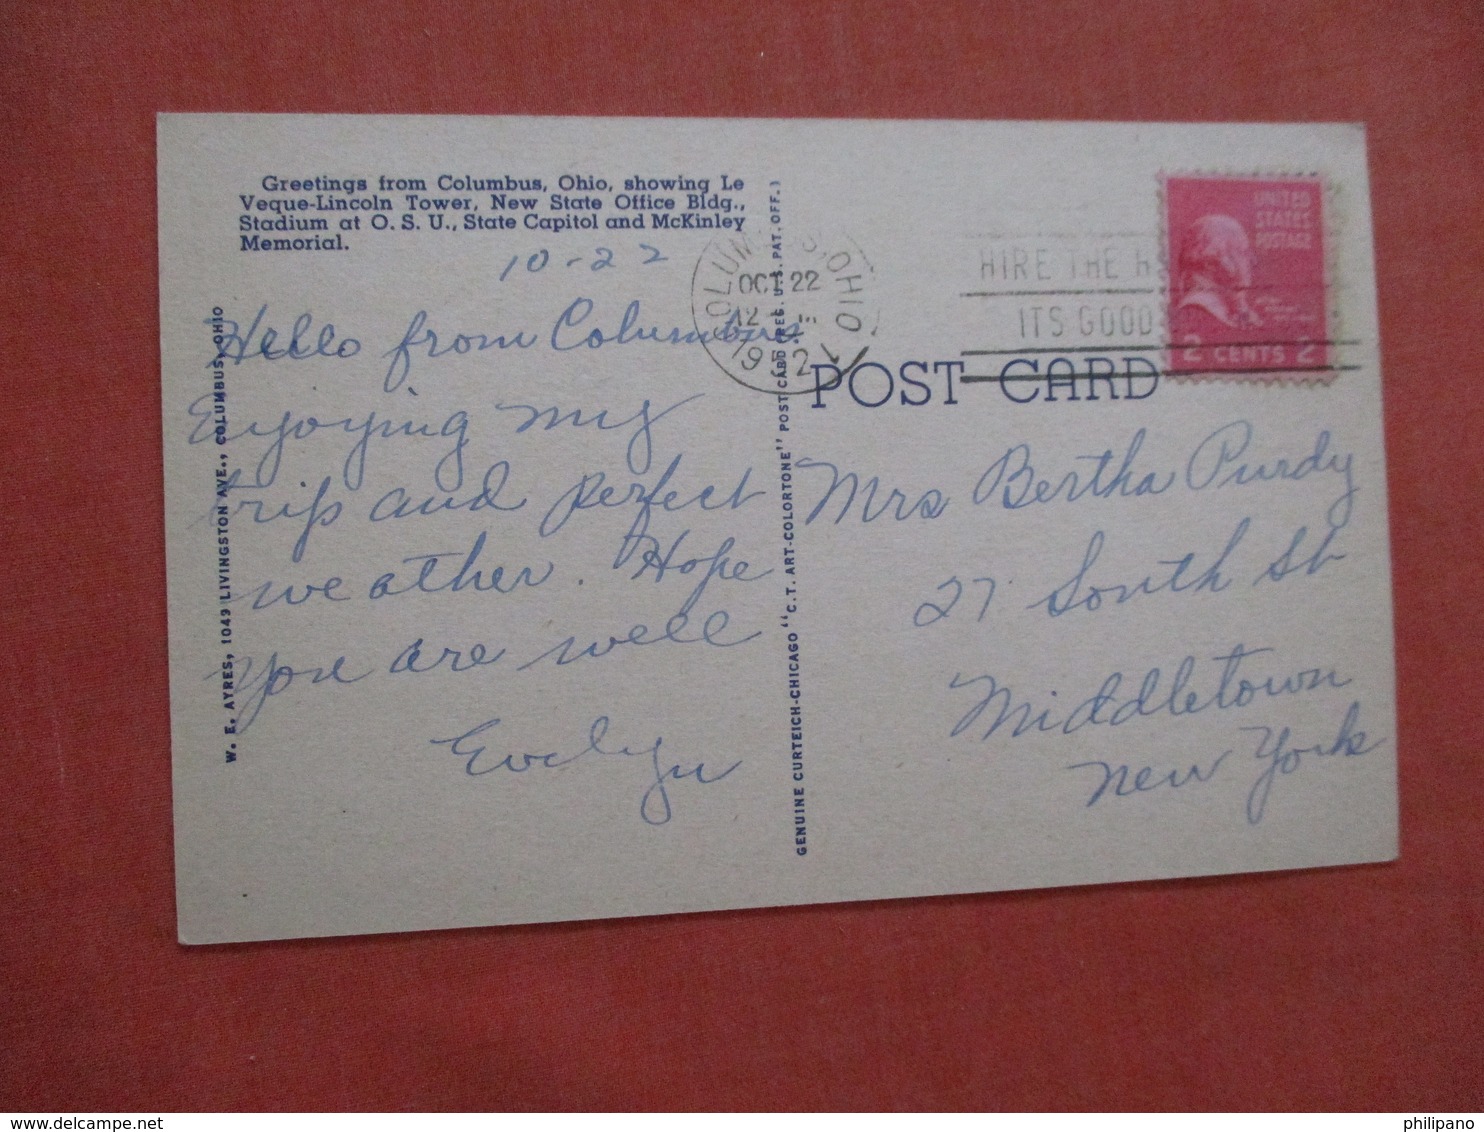 Greetings from Columbus, Ohio, showing Le
Veque-Lincoln Tower, New State Office Bldg.,
Stadium at O. S. U., State Capitol and McKinley
Memorial.
10-22
Hello from Columbus
Enjoying my
trip and perfect
weather. Hope
you are well
Evelyn
W. E. AYRES, 1049 LIVINGSTON AVE., COLUMBUS, OHIO
GENUINE CURTEICH-CHICAGO "C.T. ART-COLORTONE" POST CARD (REG. U.S. PAT. OFF.)
COLUMBUS, OHIO
OCT 22
12
1952
HIRE THE H
ITS GOOD
UNITED
STATES
POSTAGE
2 CENTS 2
POST CARD
Mrs Bertha Purdy
27 South St
Middletown
New York
delcampe.net
philipano